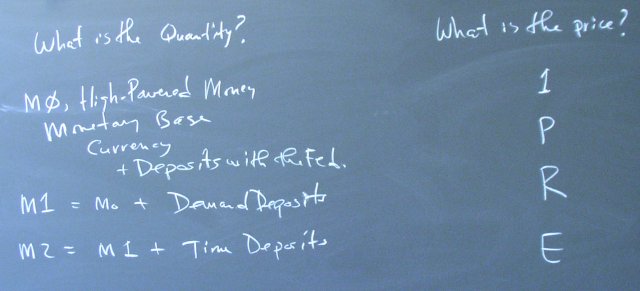 What is the Quantity?
What is the price?
MØ, High-Powered Money
Monetary Base
Currency
+ Deposits with the Fed.
M1 = Mo + Demand Deposits
M2 = M1 + Time Deposits
1
P
R
E